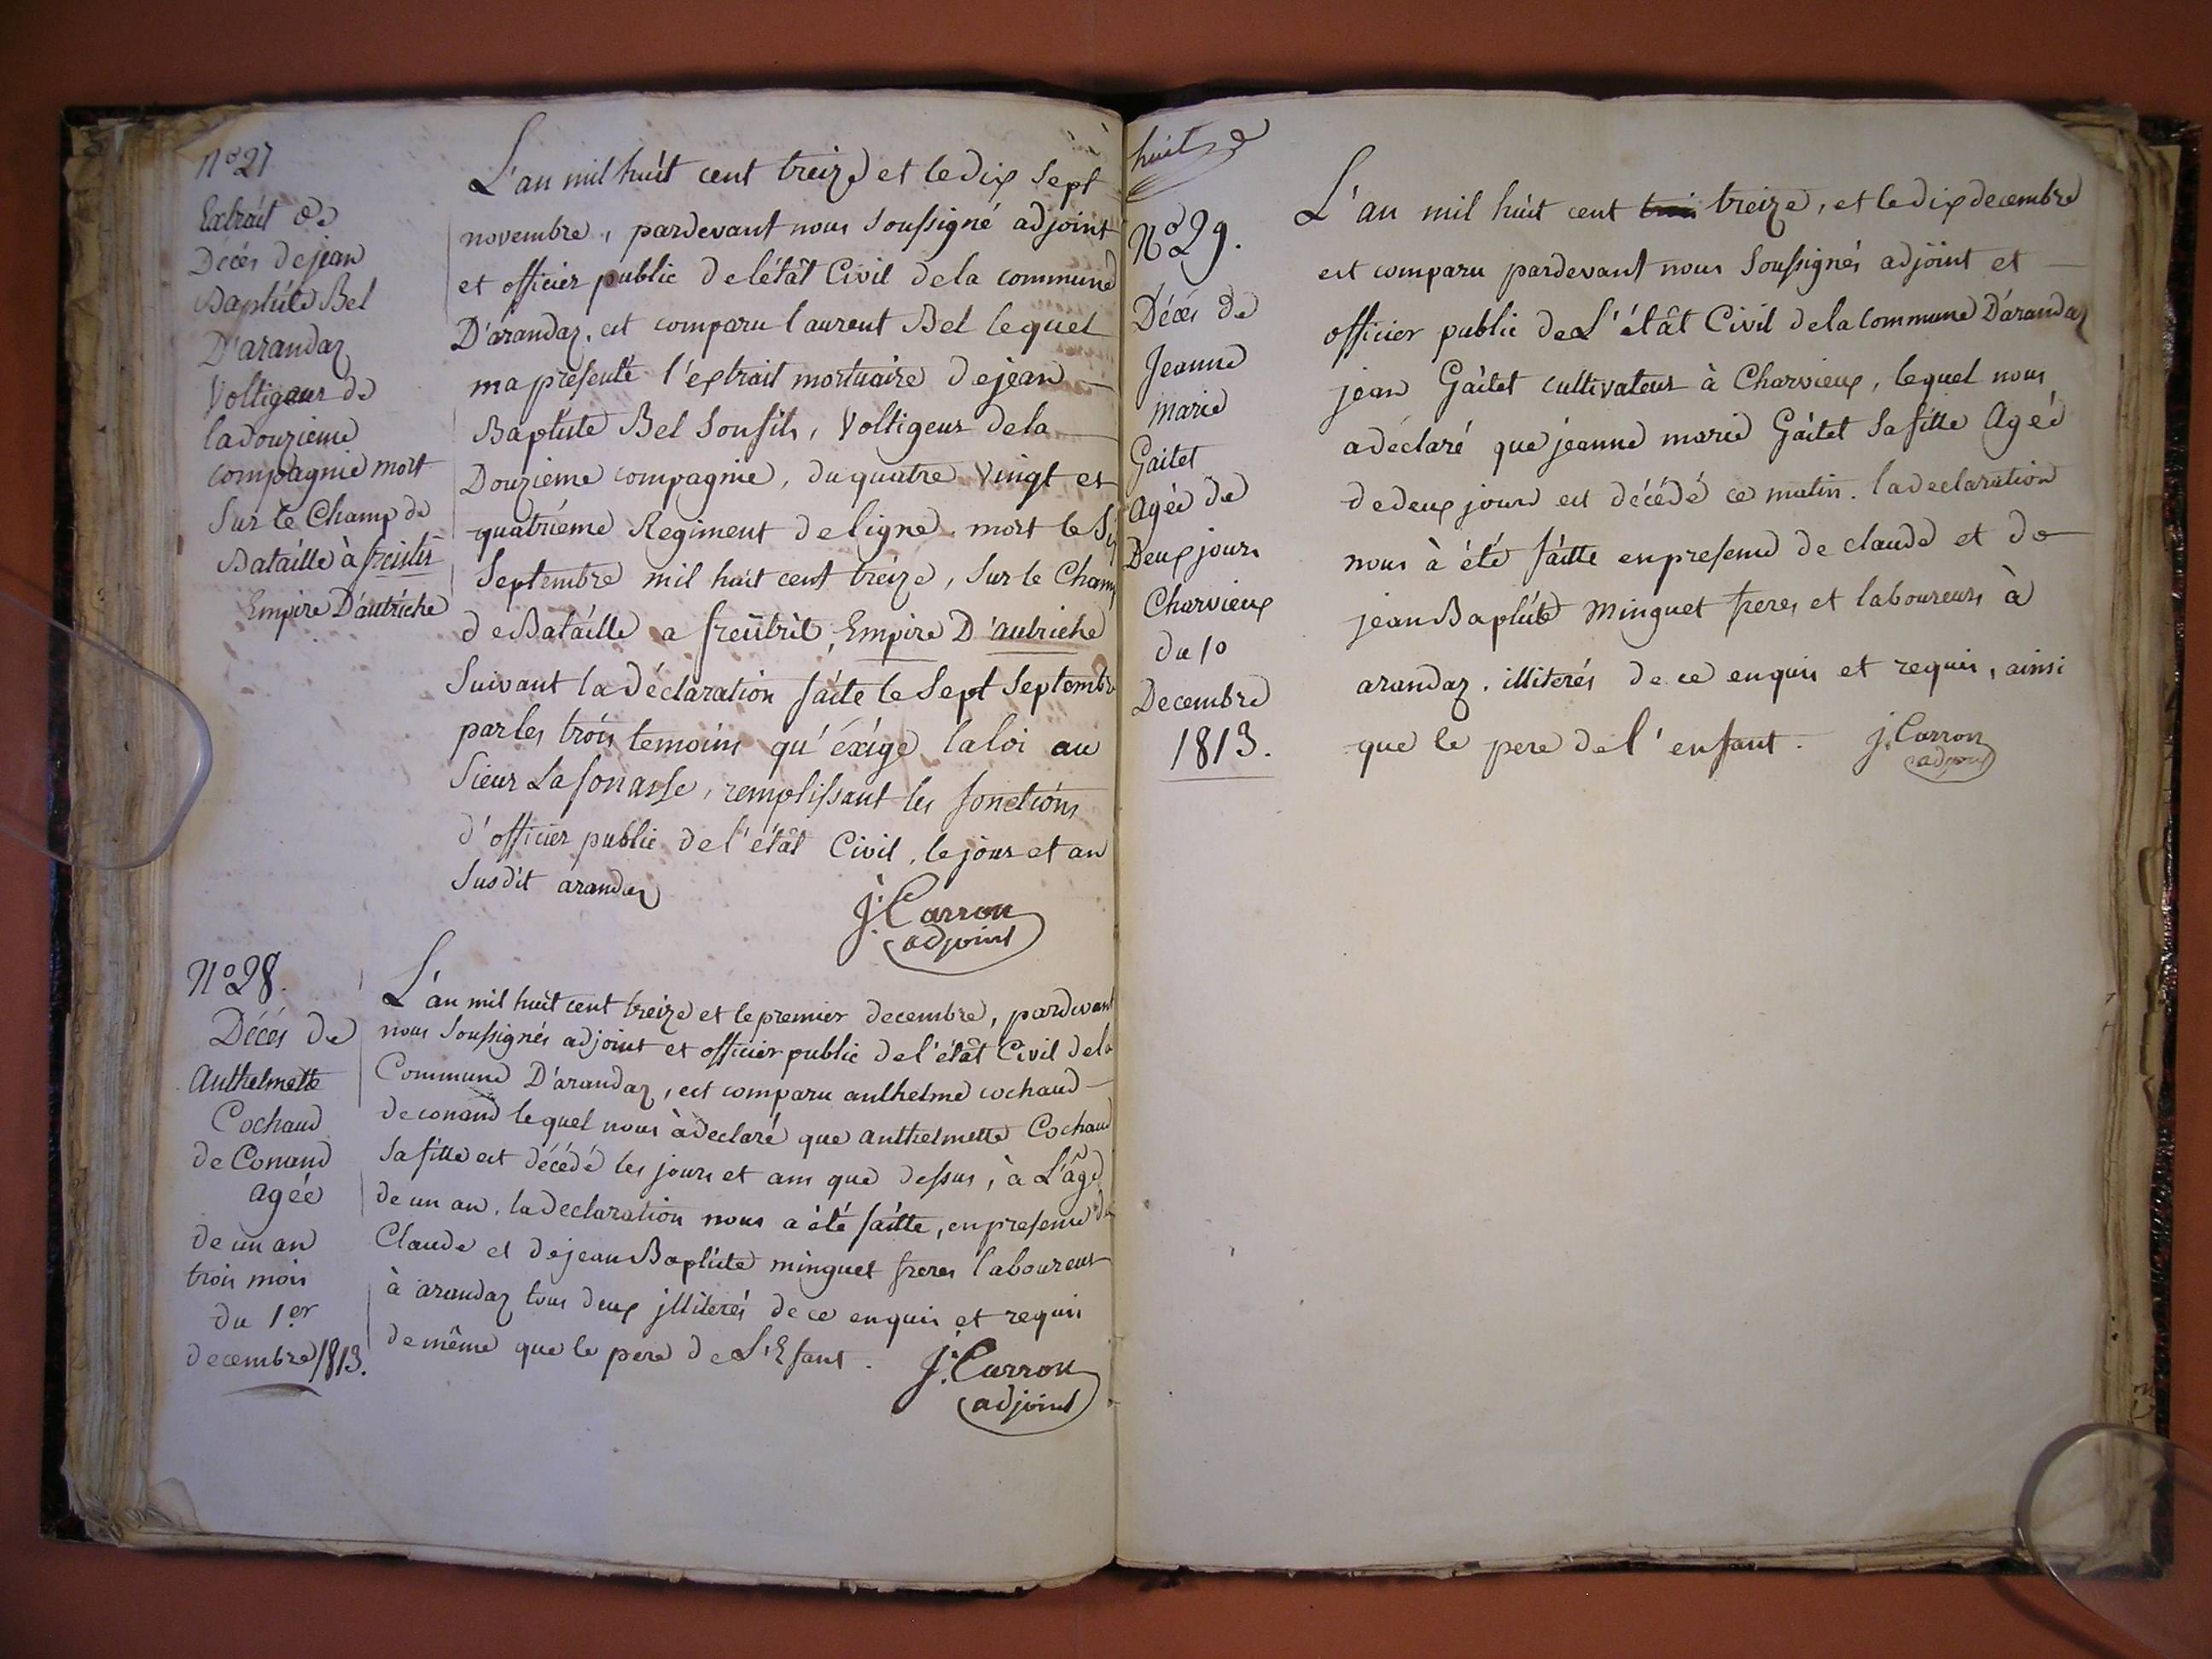 N° 27
Extrait de
Décés de jean
Baptiste Bel
D'arandaz
Voltigeur de
la douzieme
compagnie mort
Sur le Champ de
Bataille à
Empire D'autriche
L'an mil huit cent treize et le dix sept
novembre, pardevant nous soussigné adjoint
et officier public de l'état Civil de la commune
D'arandaz. est comparu laurent Bel lequel
m'a présenté l'extrait mortuaire de jean
Baptiste Bel son fils, Voltigeur de la
Douzième compagnie, du quatre Vingt et
quatriéme Regiment de ligne mort le Six
Septembre mil huit cent treize, Sur le Champ
de Bataille a Empire D'autriche
Suivant la déclaration faite le Sept Septembre
par les trois temoins qu'éxige la loi au
Sieur Lafonasse, remplissant les fonctions
d'officier public de l'état Civil, le jour et an
Susdit arandaz
j. Carron
adjoint
N° 28.
Décés de
Anthelmette
Cochaud
de Conand
agée
de un an
trois mois
du 1er
decembre 1813.
L'an mil huit cent treize et le premier decembre, pardevant
nous Soussignés adjoint et officier public de l'état Civil de la
Commune D'arandaz, est comparu anthelme cochaud
de conand lequel nous à declaré que anthelmette Cochaud
Sa fille est décédé les jours et ans que dessus, à L'âge
de un an. la declaration nous a été faitte, en presence de
Claude et de jean Baptiste minguet freres laboureur
à arandaz tous deux illiterés de ce enquis et requis
de même que le pere de L'Efant.
j. Carron
adjoint
huit
N° 29.
Décés de
Jeanne
marie
Gaitet
Agée de
Deux jours
Charvieux
du 10
Decembre
1813.
L'an mil huit cent treize, et le dix decembre
est comparu pardevant nous Soussignés adjoint et
officier public de L'état Civil de la Commune D'arandaz
jean Gaitet cultivateur à Charvieux, lequel nous
a déclaré que jeanne marie Gaitet Sa fille Agée
de deux jours est décédé ce matin. la declaration
nous à été faitte en presence de claude et de
jean Baptiste Minguet freres et laboureurs à
arandaz. illiterés de ce enquis et requis, ainsi
que le pere de l'enfant.
j. Carron
adjoint